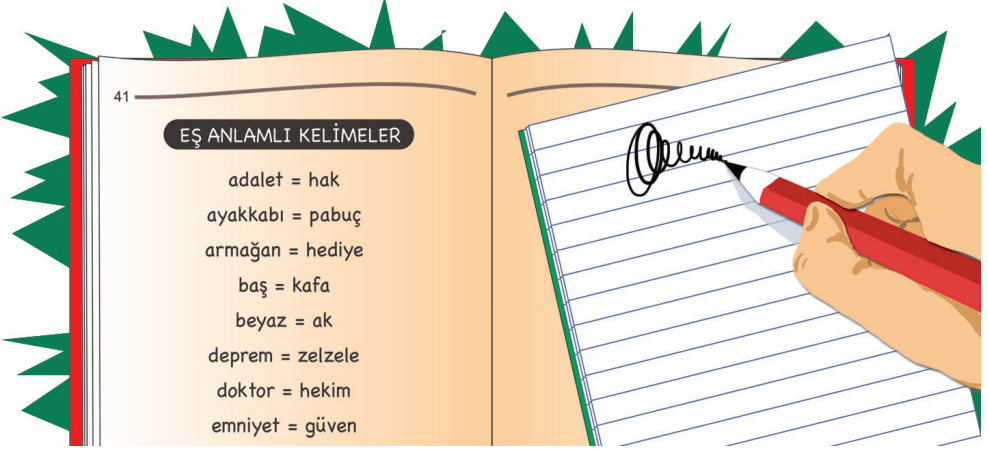 41
EŞ ANLAMLI KELİMELER
adalet = hak
ayakkabı = pabuç
armağan = hediye
baş = kafa
beyaz = ak
deprem = zelzele
doktor = hekim
emniyet = güven